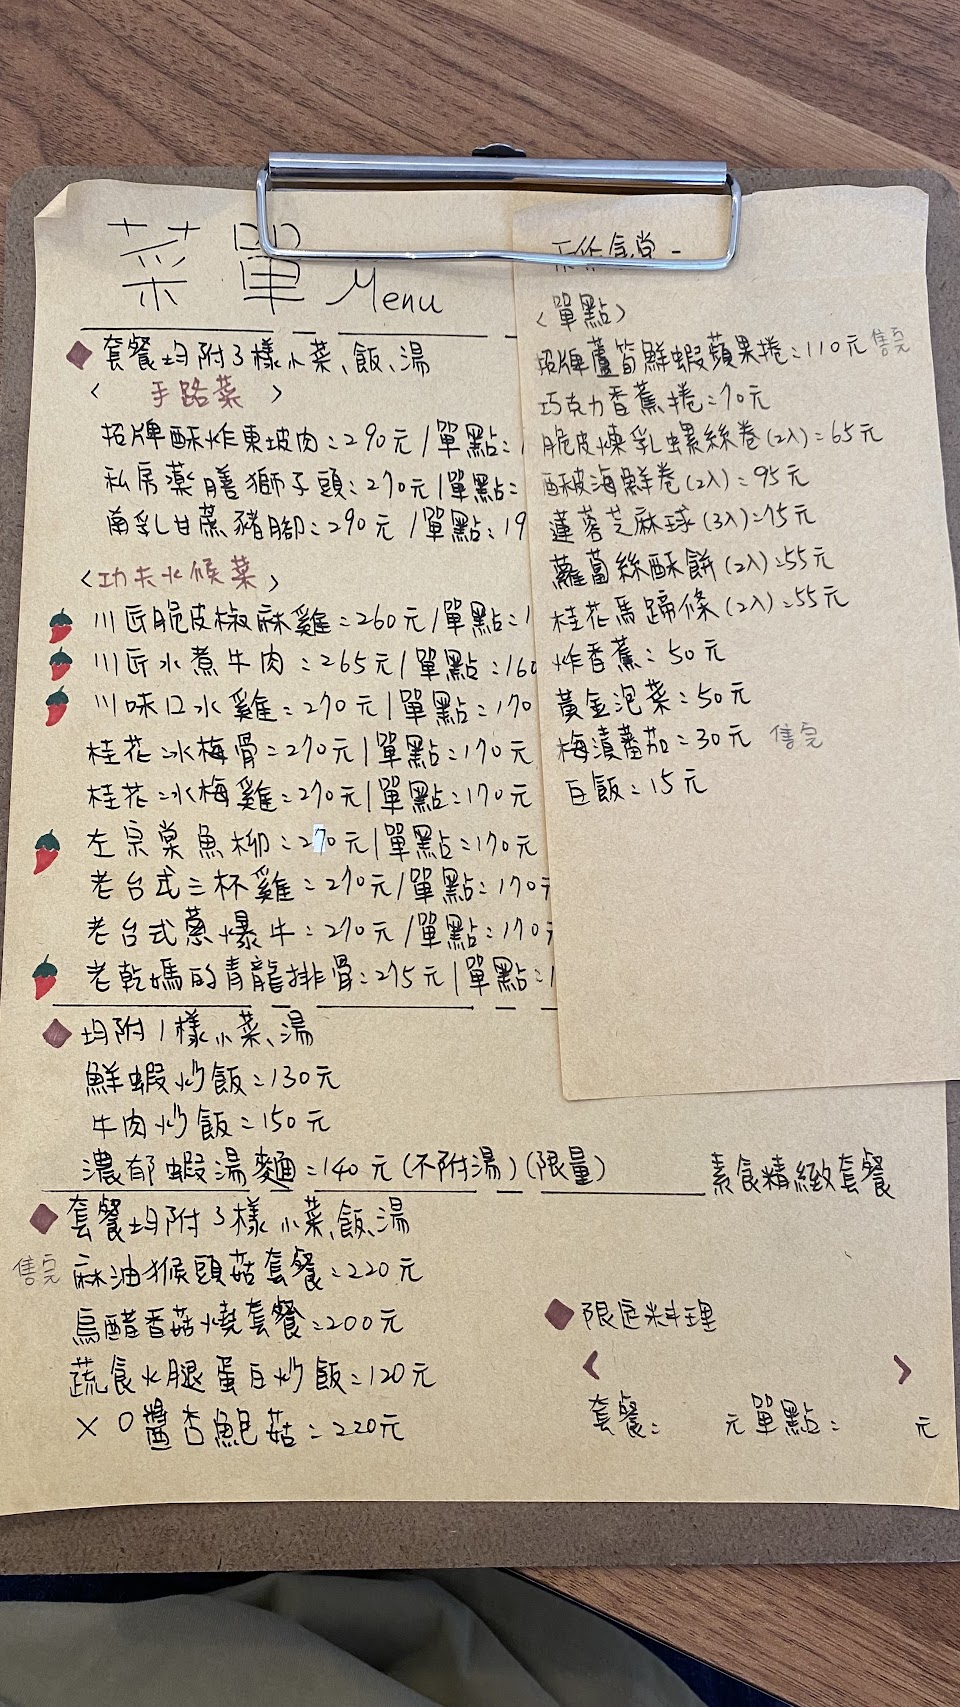 菜單 Menu
套餐均附3樣小菜、飯、湯
< 手路菜 >
招牌酥炸東坡肉:290元/單點:1
私房藥膳獅子頭:270元/單點:
南乳甘蔗豬腳:290元/單點:19
<功夫火候菜>
川匠脆皮椒麻雞:260元/單點:1
川匠水煮牛肉:265元/單點:160
川味口水雞:270元/單點:170
桂花冰梅骨:270元/單點:170元
桂花冰梅雞:270元/單點:170元
左宗棠魚柳:270元/單點:170元
老台式三杯雞:270元/單點:170
老台式蔥爆牛:270元/單點:170
老乾媽的青龍排骨:275元/單點:1
均附1樣小菜、湯
鮮蝦炒飯:130元
牛肉炒飯:150元
濃郁蝦湯麵:140元(不附湯)(限量)
素食精緻套餐
套餐均附3樣小菜、飯、湯
售完 麻油猴頭菇套餐:220元
烏醋香菇燒套餐:200元
蔬食火腿蛋白炒飯:120元
XO醬杏鮑菇:220元
食堂-
<單點>
招牌蘆筍鮮蝦蘋果捲:110元 售完
巧克力香蕉捲:70元
脆皮煉乳螺絲卷(2入):65元
酥皮海鮮卷(2入):95元
蓮蓉芝麻球(3入):75元
蘿蔔絲酥餅(2入):55元
桂花馬蹄條(2入):55元
炸香蕉:50元
黃金泡菜:50元
梅漬蕃茄:30元 售完
白飯:15元
限定料理
< >
套餐: 元 單點: 元